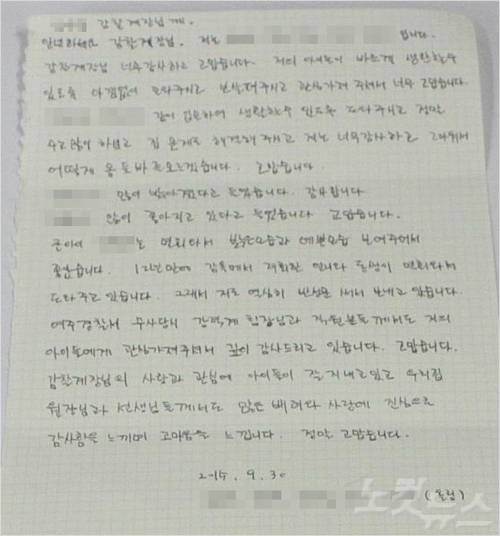 감찰계장님께.
안녕하세요 감찰계장님. 저는 입니다.
감찰계장님 너무 감사하고 고맙습니다. 저희 아이들이 바르게 생활할수
있도록 아낌없이 도와주시고 보살펴주시고 관심가져 주셔서 너무 고맙습니다
같이 입소하여 생활할수 있도록 도와주시고 정말
수고 많이 하셨고 집 문제도 해결해 주시고 저는 너무 감사하고 고마워서
어떻게 몸둘바를 모르겠습니다. 고맙습니다.
많이 밝아졌다고 들었습니다. 감사합니다
많이 좋아지고 있다고 들었습니다 고맙습니다.
큰아이 는 면회와서 밝은모습과 예쁜모습 보여주어서
좋았습니다. 12년만에 감옥에서 재회한 언니와 동생이 면회와서
도와주고 있습니다. 그래서 저도 열심히 반성문 써서 보내고 있습니다.
여주경찰서 수사당시 강력계 팀장님과 직원분들께서도 저희
아이들에게 관심가져주셔서 깊이 감사드리고 있습니다. 고맙습니다.
감찰계장님의 사랑과 관심에 아이들이 잘 지내고 있고 우리집
원장님과 선생님들께서도 많은 배려와 사랑에 진심으로
감사함을 느끼며 고마움을 느낍니다. 정말 고맙습니다.
2015. 9. 30
(올림)
노컷뉴스